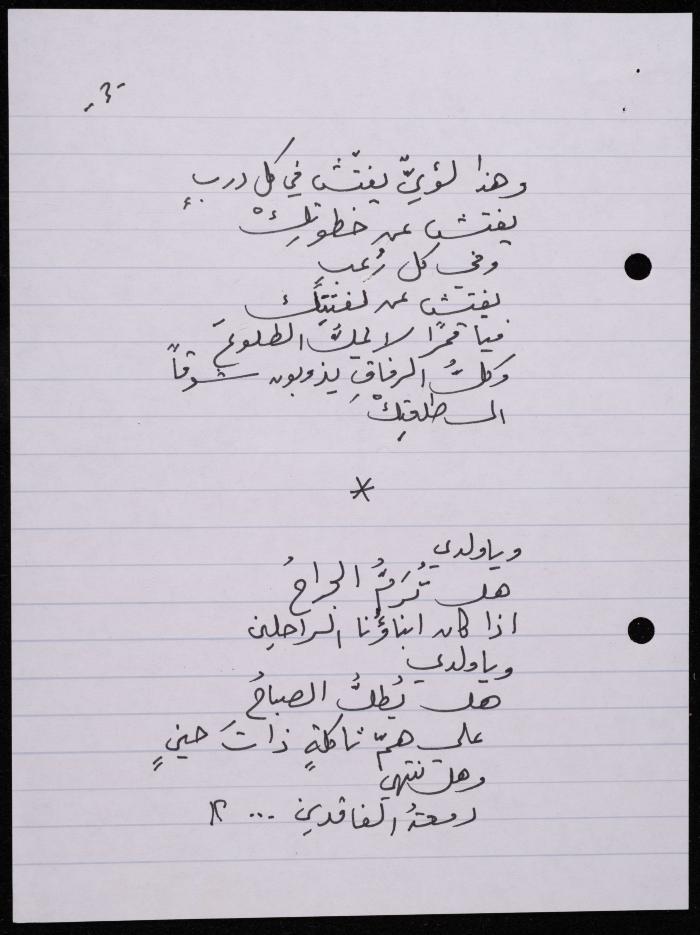 -٣-
وهذا لؤيٌّ يفتّش في كل دربٍ
يفتش عن خطوتِكْ
وفي كل رُعبٍ
يفتش عن لفتتِكَ
فيا قمرًا لا يملُّ الطلوعَ
وكلُّ الرفاقِ يذوبون شوقاً
الى طلعتِكْ
*
ويا ولدي
هل تُرَمُّ الجراحُ
اذا كان ابناؤُنا الراحلين
ويا ولدي
هل يُطلُّ الصباحُ
على همّ ثاكلةٍ ذاتَ حينٍ
وهل تنتهي
دمعةُ الفاقدين ...